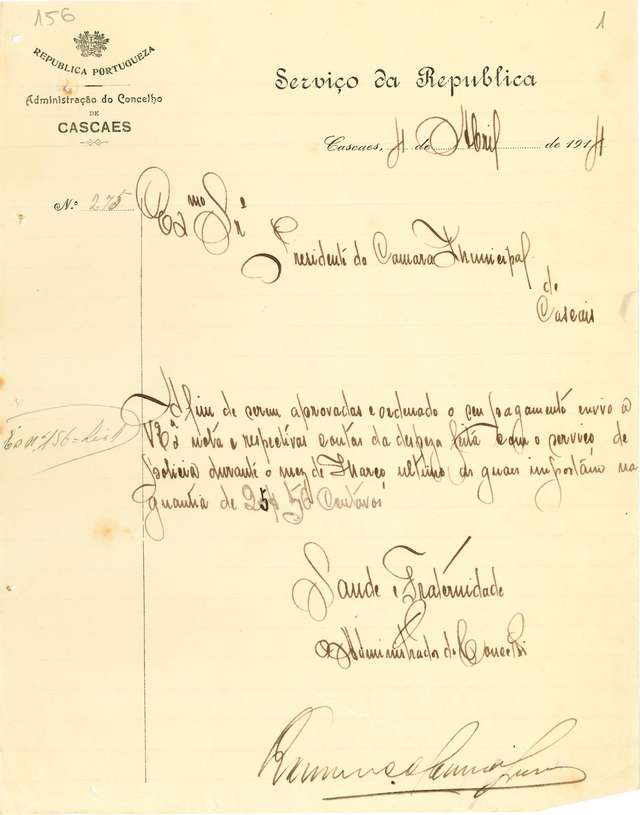 156
1
REPUBLICA PORTUGUEZA
Administração do Concelho
DE
CASCAES
Serviço da Republica
Cascaes, 4 de Abril de 1914
N.º 275
Exmo Snr
Presidente da Camara Municipal
de
Cascais
Afim de serem aprovadas e ordenado o seu pagamento envio a
VExª nota e respectivas contas da despeza feita com o serviço de
policia durante o mez de Março ultimo, as quais importam na
quantia de 25$50 Centavos
nº 156
Saude e Fraternidade
O Administrador do Concelho